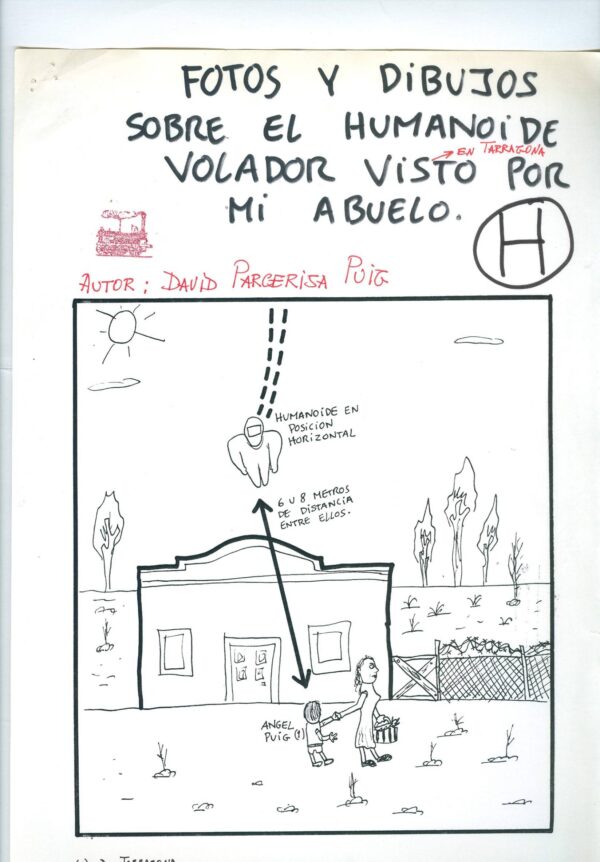 FOTOS Y DIBUJOS
SOBRE EL HUMANOIDE
EN TARRAGONA
VOLADOR VISTO POR
MI ABUELO.
H
AUTOR: DAVID PARCERISA PUIG
HUMANOIDE EN
POSICION
HORIZONTAL
6 U 8 METROS
DE DISTANCIA
ENTRE ELLOS.
ANGEL
PUIG (!)
TARRAGONA